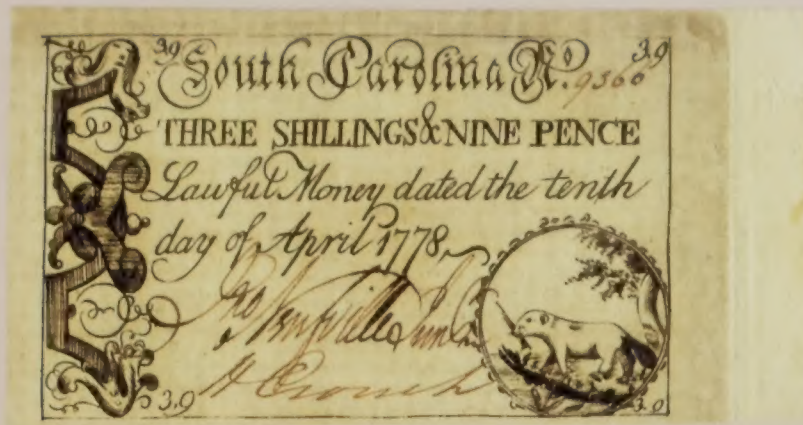 3.9 South Carolina No. 9366 3.9
THREE SHILLINGS & NINE PENCE
Lawful Money dated the tenth
day of April 1778
Jno Neufville Junr
H Crouch
3.9 3.9